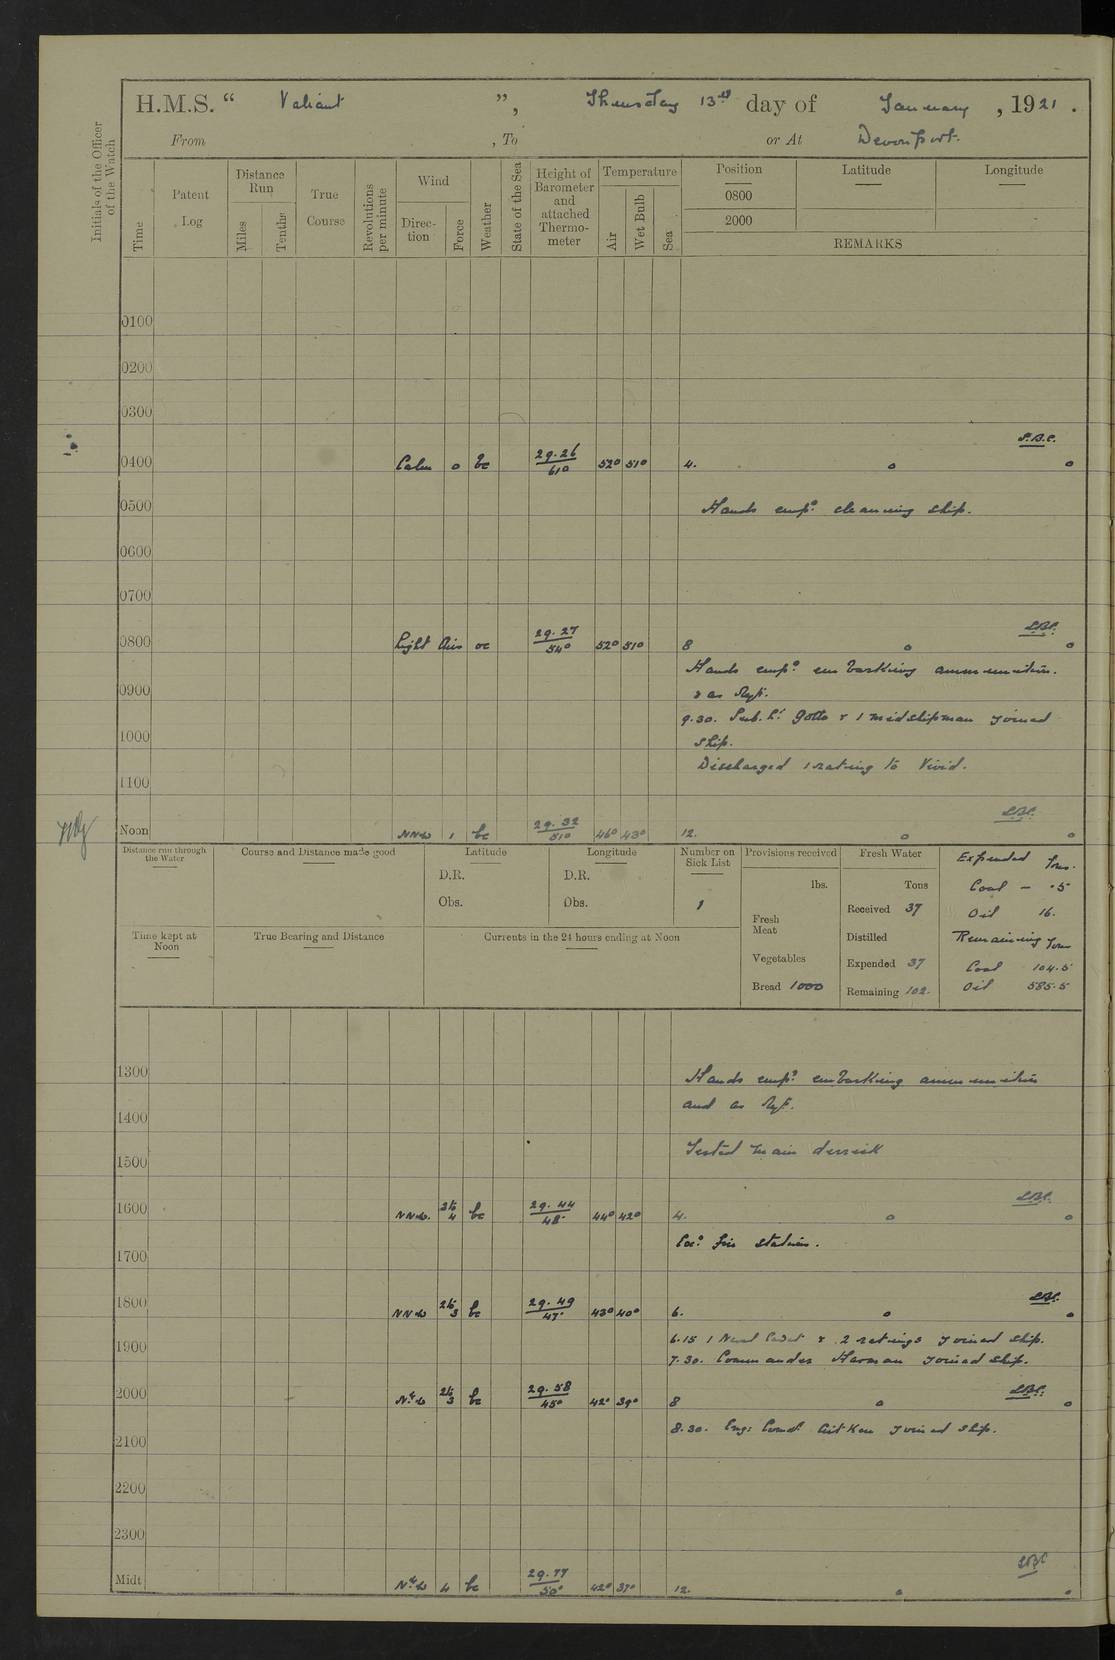 H.M.S. “ Valiant ”, Thursday 13th day of January , 1921 .
From , To or At Devonport.
Initials of the Officer of the Watch
Time
Patent Log
Distance Run
Miles
Tenths
True Course
Revolutions per minute
Wind
Direc-tion
Force
Weather
State of the Sea
Height of Barometer and attached Thermo-meter
Temperature
Air
Wet Bulb
Sea
Position
0800
2000
Latitude
Longitude
REMARKS
0100
0200
0300
0400 Calm 0 bc 29.26 / 61° 52° 51° 4. o o
0500 Hands emp.d cleaning ship.
0600
0700
0800 Light Airs oc 29.27 / 54° 52° 51° 8 o o
Hands emp.d embarking ammunition.
0900 & as reqt.
9.30. Sub. Lt. Gotto & 1 midshipman joined
1000 ship.
Discharged 1 rating to Vivid.
1100
Noon NNW 1 bc 29.32 / 51° 46° 43° 12. o o
Distance run through the Water
Course and Distance made good
Latitude
D.R.
Obs.
Longitude
D.R.
Obs.
Number on Sick List
1
Provisions received
lbs.
Fresh Meat
Vegetables
Bread 1000
Fresh Water
Tons
Received 37
Distilled
Expended 37
Remaining 102.
Expended Tons.
Coal – .5
Oil 16.
Remaining Tons
Coal 104.5
Oil 585.5
Time kept at Noon
True Bearing and Distance
Currents in the 24 hours ending at Noon
1300 Hands emp.d embarking ammunition
and as reqt.
1400
1500 Tested main derrick
1600 NNW. 3 to 4 bc 29.44 / 48° 44° 42° 4. o o
Exd. fire stations.
1700
1800 NNW 2 to 3 bc 29.49 / 47° 43° 40° 6. o o
6.15 1 Naval Cadet & 2 ratings joined ship.
1900
7.30. Commander Harman joined ship.
2000 N.W 2 to 3 bc 29.58 / 45° 42° 39° 8 o o
8.30. Eng: Comdr. Aitken joined ship.
2100
2200
2300
Midt N.W 4 bc 29.77 / 50° 42° 37° 12. o o